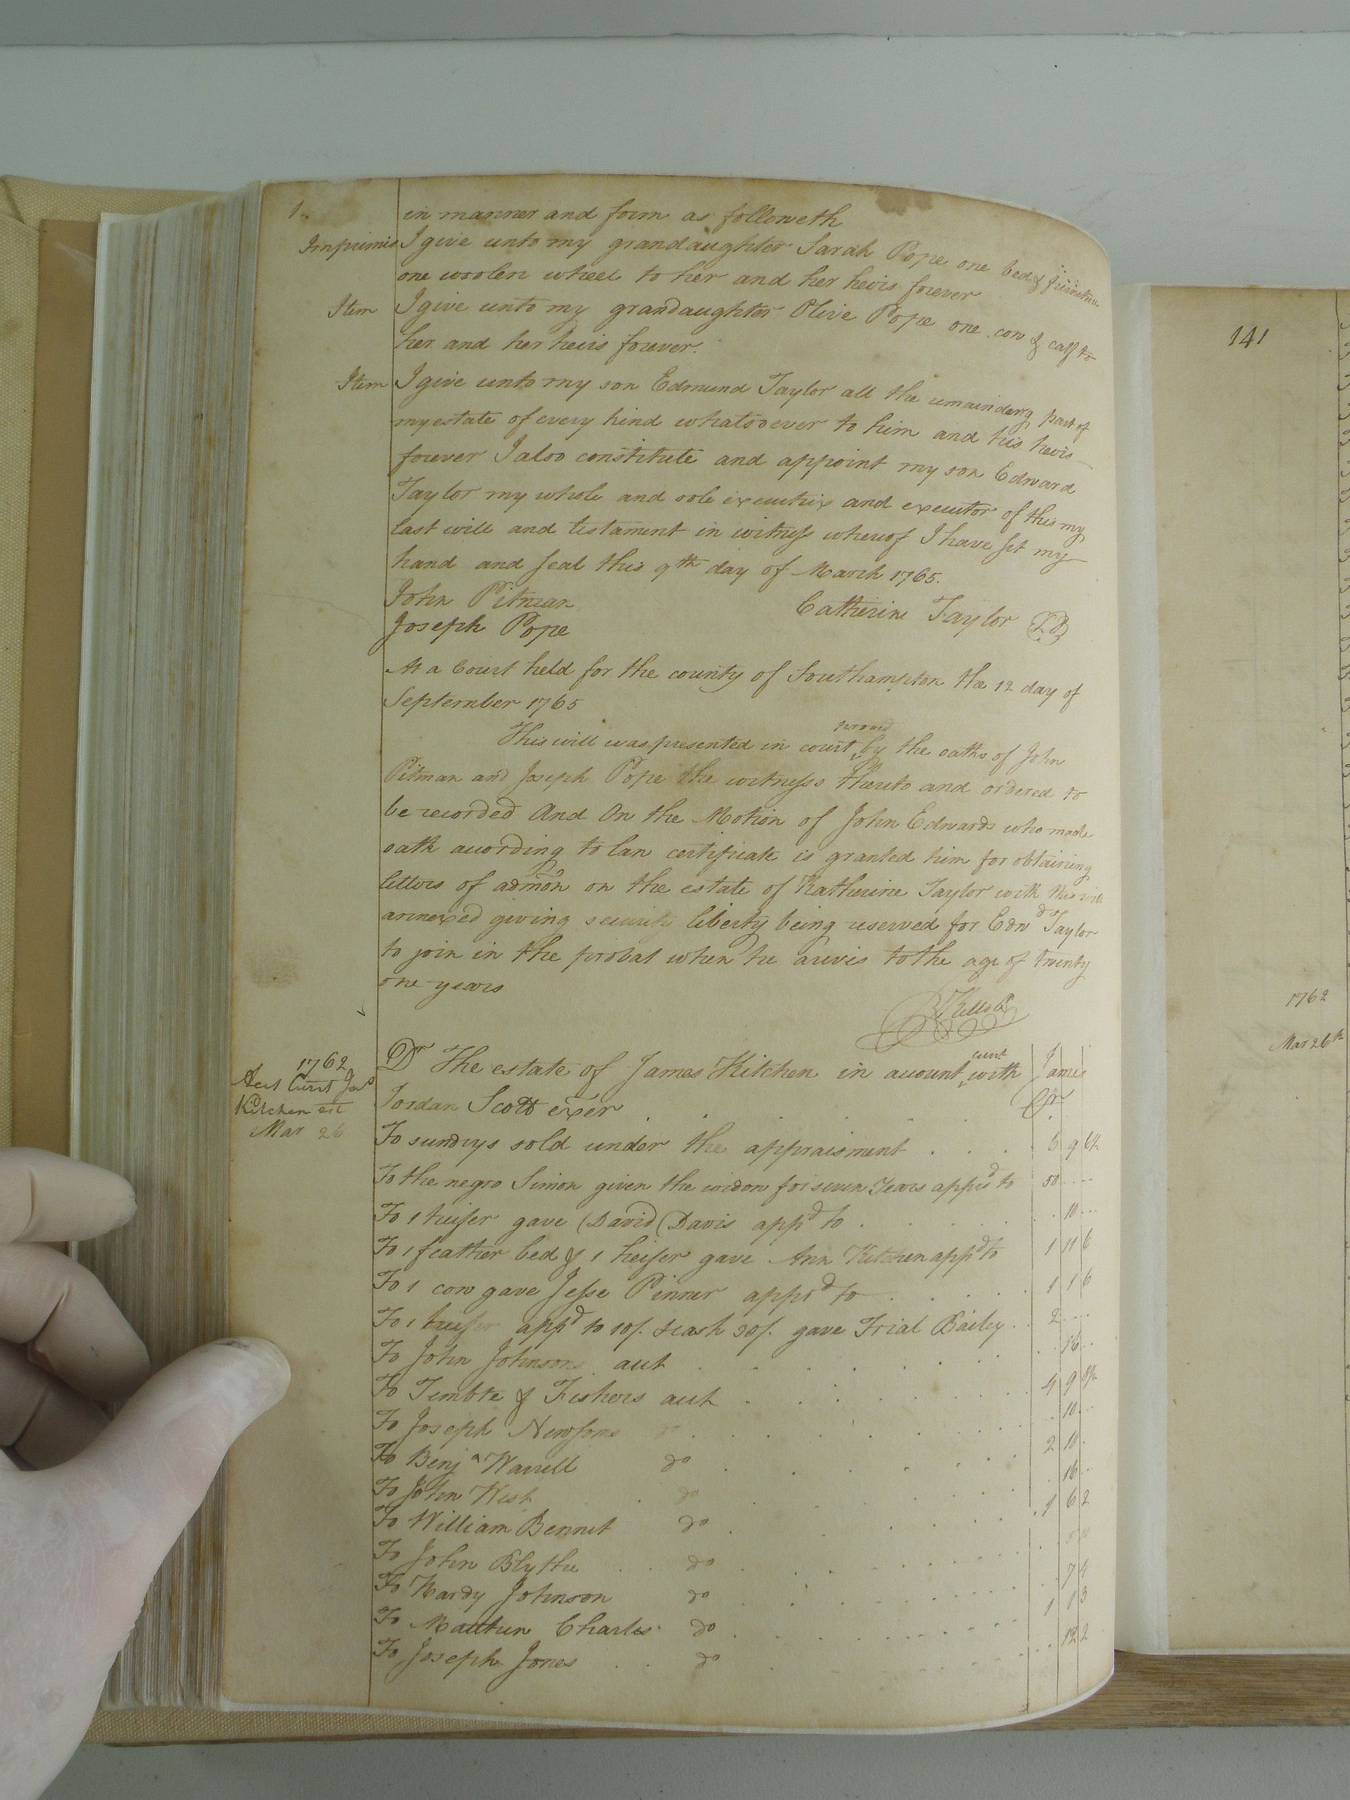 1.
in manner and form as followeth
Imprimis I give unto my grandaughter Sarah Pope one bed & furniture
one woolen wheel to her and her heirs forever
Item I give unto my grandaughter Olive Pope one cow & calf to
her and her heirs forever.
Item I give unto my son Edmund Taylor all the remainderg part of
my estate of every kind whatsoever to him and his heirs
forever I also constitute and appoint my son Edward
Taylor my whole and sole executrix and executor of this my
last will and testament in witness whereof I have set my
hand and seal this 9th day of March 1765.
John Pitman
Catherine Taylor
Joseph Pope
At a Court held for the county of Southampton the 12 day of
September 1765
This will was presented in court proved by the oaths of John
Pitman and Joseph Pope the witness thereto and ordered to
be recorded And On the Motion of John Edwards who made
oath acording to law certificate is granted him for obtaining
letters of admion on the estate of Katherine Taylor with this will
annexed giving security liberty being reserved for Edwd Taylor
to join in the probat when he arives to the age of twenty
one years
1762
Acct Currt Jas
Kitchen est
Mar 26
Dr The estate of James Kitchen in acount curnt with James
Jordan Scott exer Cr
To sundrys sold under the appraisment 9
To the negro Simon given the widow for seven years apprd to 50
To 1 heifer gave David Davis appd to 10
To 1 feather bed & 1 heifer gave Ann Kitchen appd to 1 11 6
To 1 cow gave Jesse Pinner apprd to 1 1 6
To 1 heifer appd to 10/. & cash 30/. gave Trial Bailey 2
To John Johnsons aut 16
To Timble & Fishers aut 4 9
To Joseph Newsoms do 10
To Benja Warrell do 2 10
To John West do 16
To William Bennet do 1 6 2
To John Blythe do 5
To Hardy Johnson do 7 4
To Matthew Charles do 1 1 3
To Joseph Jones do 12 2
141
1762
Mar 26th